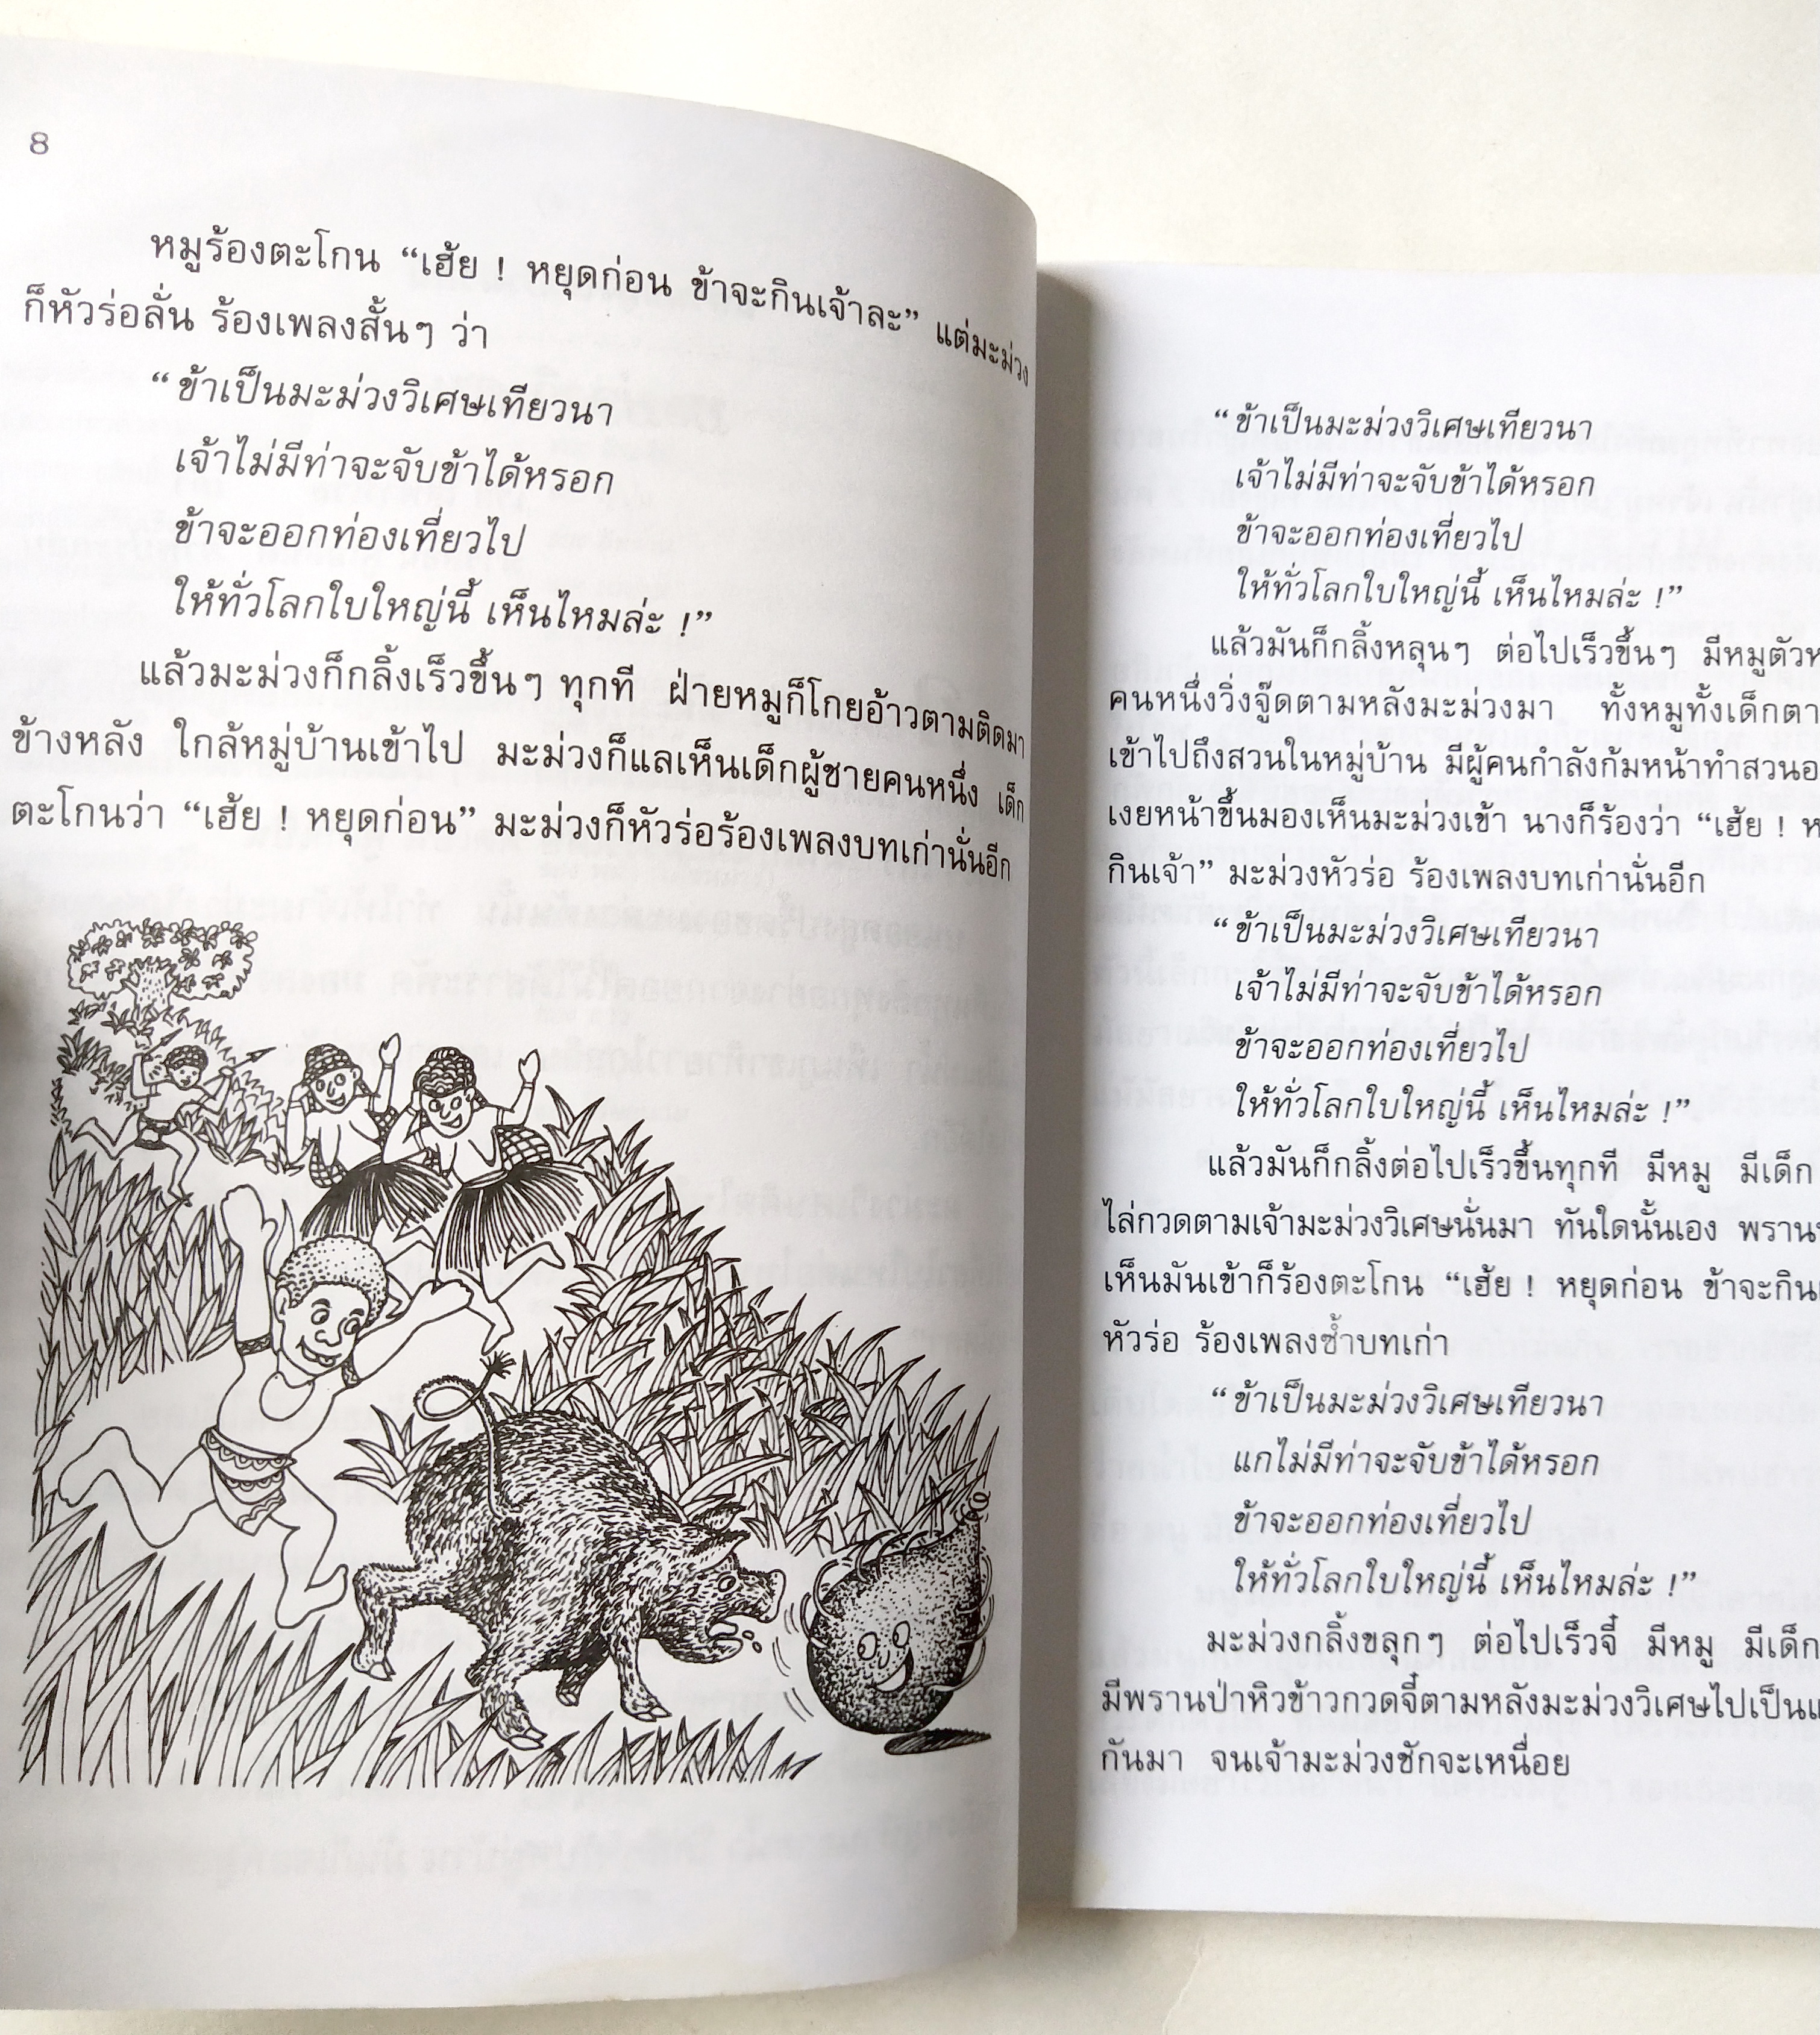 8
หมูร้องตะโกน “เฮ้ย ! หยุดก่อน ข้าจะกินเจ้าละ” แต่มะม่วง
ก็หัวร่อลั่น ร้องเพลงสั้นๆ ว่า
“ ข้าเป็นมะม่วงวิเศษเทียวนา
เจ้าไม่มีท่าจะจับข้าได้หรอก
ข้าจะออกท่องเที่ยวไป
ให้ทั่วโลกใบใหญ่นี้ เห็นไหมล่ะ !”
แล้วมะม่วงก็กลิ้งเร็วขึ้นๆ ทุกที ฝ่ายหมูก็โกยอ้าวตามติดมา
ข้างหลัง ใกล้หมู่บ้านเข้าไป มะม่วงก็แลเห็นเด็กผู้ชายคนหนึ่ง เด็ก
ตะโกนว่า “เฮ้ย ! หยุดก่อน” มะม่วงก็หัวร่อร้องเพลงบทเก่านั่นอีก
“ ข้าเป็นมะม่วงวิเศษเทียวนา
เจ้าไม่มีท่าจะจับข้าได้หรอก
ข้าจะออกท่องเที่ยวไป
ให้ทั่วโลกใบใหญ่นี้ เห็นไหมล่ะ !”
แล้วมันก็กลิ้งหลุนๆ ต่อไปเร็วขึ้นๆ มีหมูตัว
คนหนึ่งวิ่งจู๊ดตามหลังมะม่วงมา ทั้งหมูทั้งเด็ก
เข้าไปถึงสวนในหมู่บ้าน มีผู้คนกำลังก้มหน้าทำสวน
เงยหน้าขึ้นมองเห็นมะม่วงเข้า นางก็ร้องว่า “เฮ้ย !
กินเจ้า” มะม่วงหัวร่อ ร้องเพลงบทเก่านั่นอีก
“ ข้าเป็นมะม่วงวิเศษเทียวนา
เจ้าไม่มีท่าจะจับข้าได้หรอก
ข้าจะออกท่องเที่ยวไป
ให้ทั่วโลกใบใหญ่นี้ เห็นไหมล่ะ !”
แล้วมันก็กลิ้งต่อไปเร็วขึ้นทุกที มีหมู มีเด็ก
ไล่กวดตามเจ้ามะม่วงวิเศษนั่นมา ทันใดนั้นเอง พราน
เห็นมันเข้าก็ร้องตะโกน “เฮ้ย ! หยุดก่อน ข้าจะกิน
หัวร่อ ร้องเพลงซ้ำบทเก่า
“ ข้าเป็นมะม่วงวิเศษเทียวนา
แกไม่มีท่าจะจับข้าได้หรอก
ข้าจะออกท่องเที่ยวไป
ให้ทั่วโลกใบใหญ่นี้ เห็นไหมล่ะ !”
มะม่วงกลิ้งขลุกๆ ต่อไปเร็วจี๋ มีหมู มีเด็ก
มีพรานป่าหิวข้าวกวดจี๋ตามหลังมะม่วงวิเศษไปเป็น
กันมา จนเจ้ามะม่วงชักจะเหนื่อย